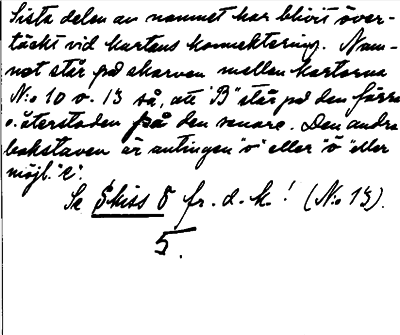 Sista delen av namnet har blivit över-
täckt vid kartans konnektering. Nam-
net står på skarven mellan kartorna
N:o 10 o. 13 så, att "B" står på den förra
o. återstoden på den senare. Den andra
bokstaven är antingen "o" eller "ö" eller
möjl. "e".
Se Skiss 5 fr. d. k.! (N:o 13).
5.